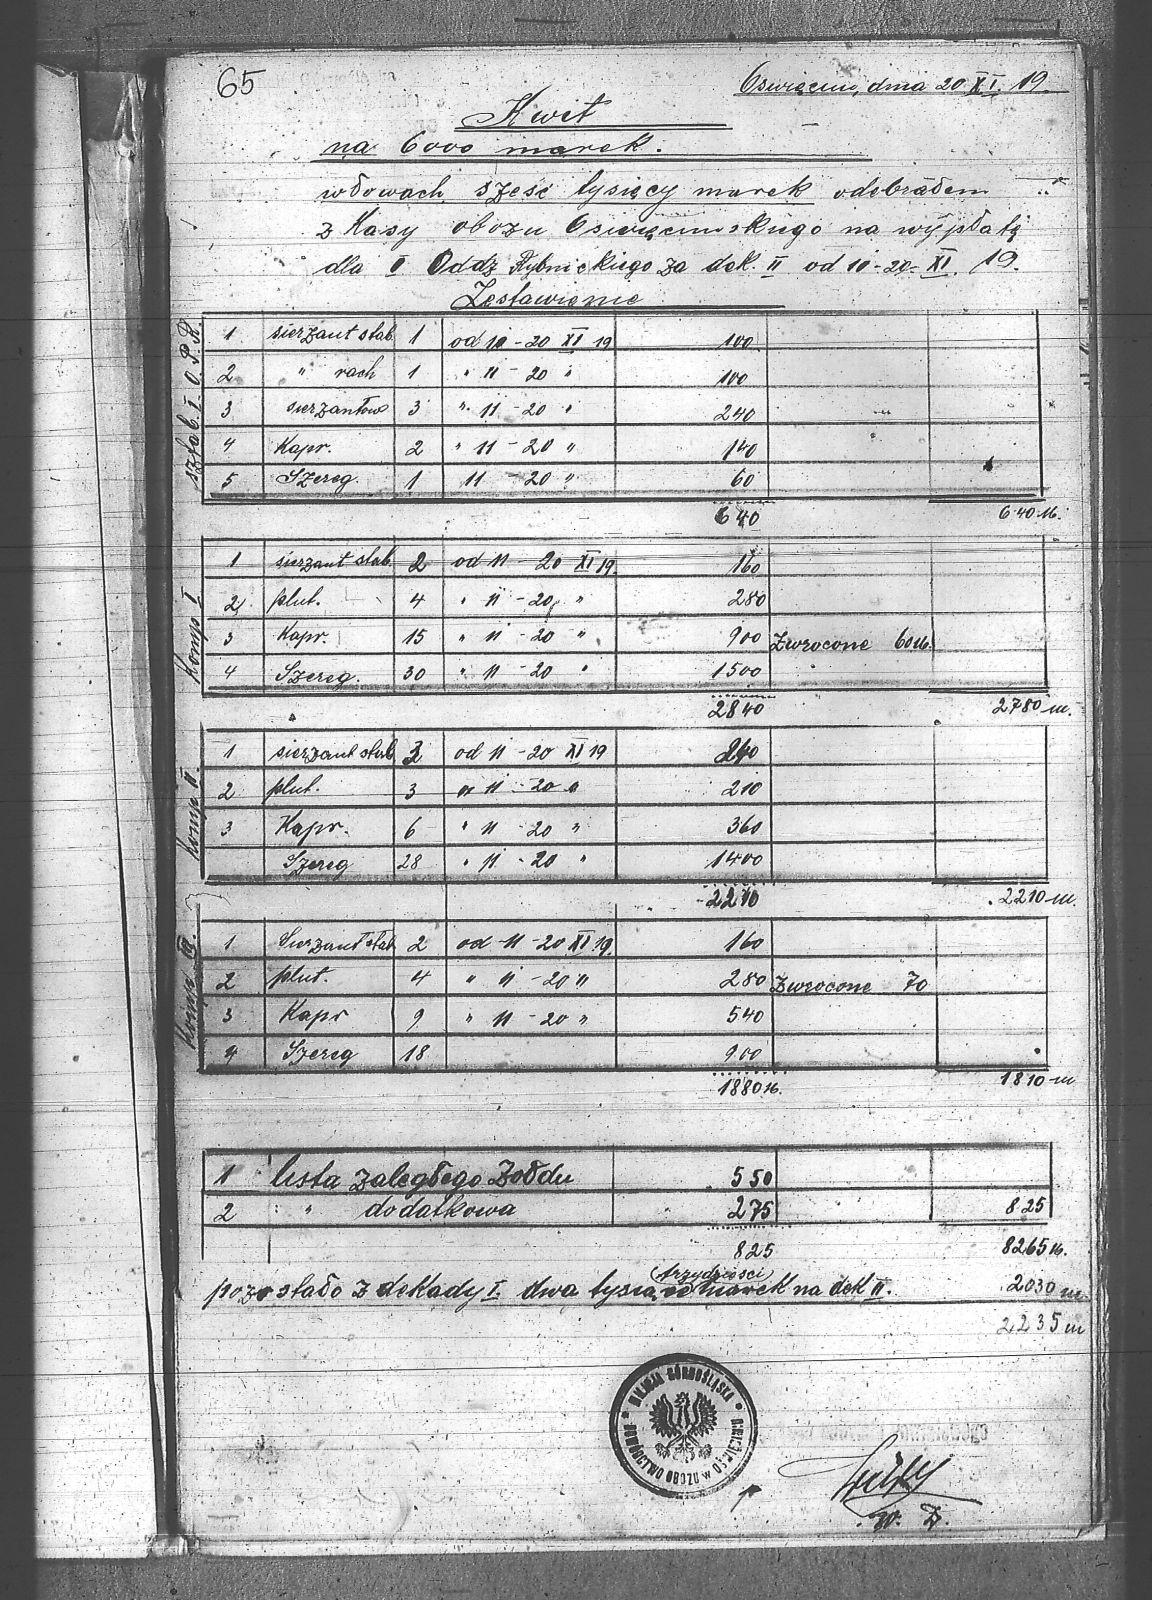 65
Oświęcim, dnia 20. XI. 19.
Kwit
na 6000 marek.
wsłowach sześć tysięcy marek odebrałem
z Kasy obozu Oswięcimskiego na wypłatę
dla I Oddz Rybnickiego za dek. II od 10-20-XI. 19.
Zestawienie
sztab. I. O. P. R.
1 sierzant stab. 1 od 10-20 XI 19 100
2 " rach 1 " 11-20 " 100
3 sierzantów 3 " 11-20 " 240
4 Kapr. 2 " 11-20 " 140
5 Szereg. 1 11-20 " 60
640 640 M.
Komp I
1 sierzant stab. 2 od 11-20 XI 19. 160
2 plut. 4 " 11-20 " 280
3 Kapr. 15 " 11-20 " 900 Zwrocone 60 M.
4 Szereg. 30 " 11-20 " 1500
2840 2780 m.
Komp II.
1 sierzant stab 3 od 11-20 XI 19 240
2 plut. 3 " 11-20 " 210
3 Kapr. 6 " 11-20 " 360
Szereg 28 " 11-20 " 1400
2210 2210 m.
Komp III.
1 Sierzant stab 2 od 11-20 XI 19. 160
2 plut. 4 " 11-20 " 280 Zwrocone 70
3 Kapr 9 " 11-20 " 540
4 Szereg 18 900
1880 M. 1810 m
1 lista zaległego żołdu 550
2 " dodatkowa 275 825
825 8265 M.
trzydzieści
pozostało z dekady I. dwa tysiące marek na dek II. 2030 m
2235 m
MILICJA GÓRNOŚLĄSKA
DOWÓDCTWO OBOZU w OŚWIĘCIMIU